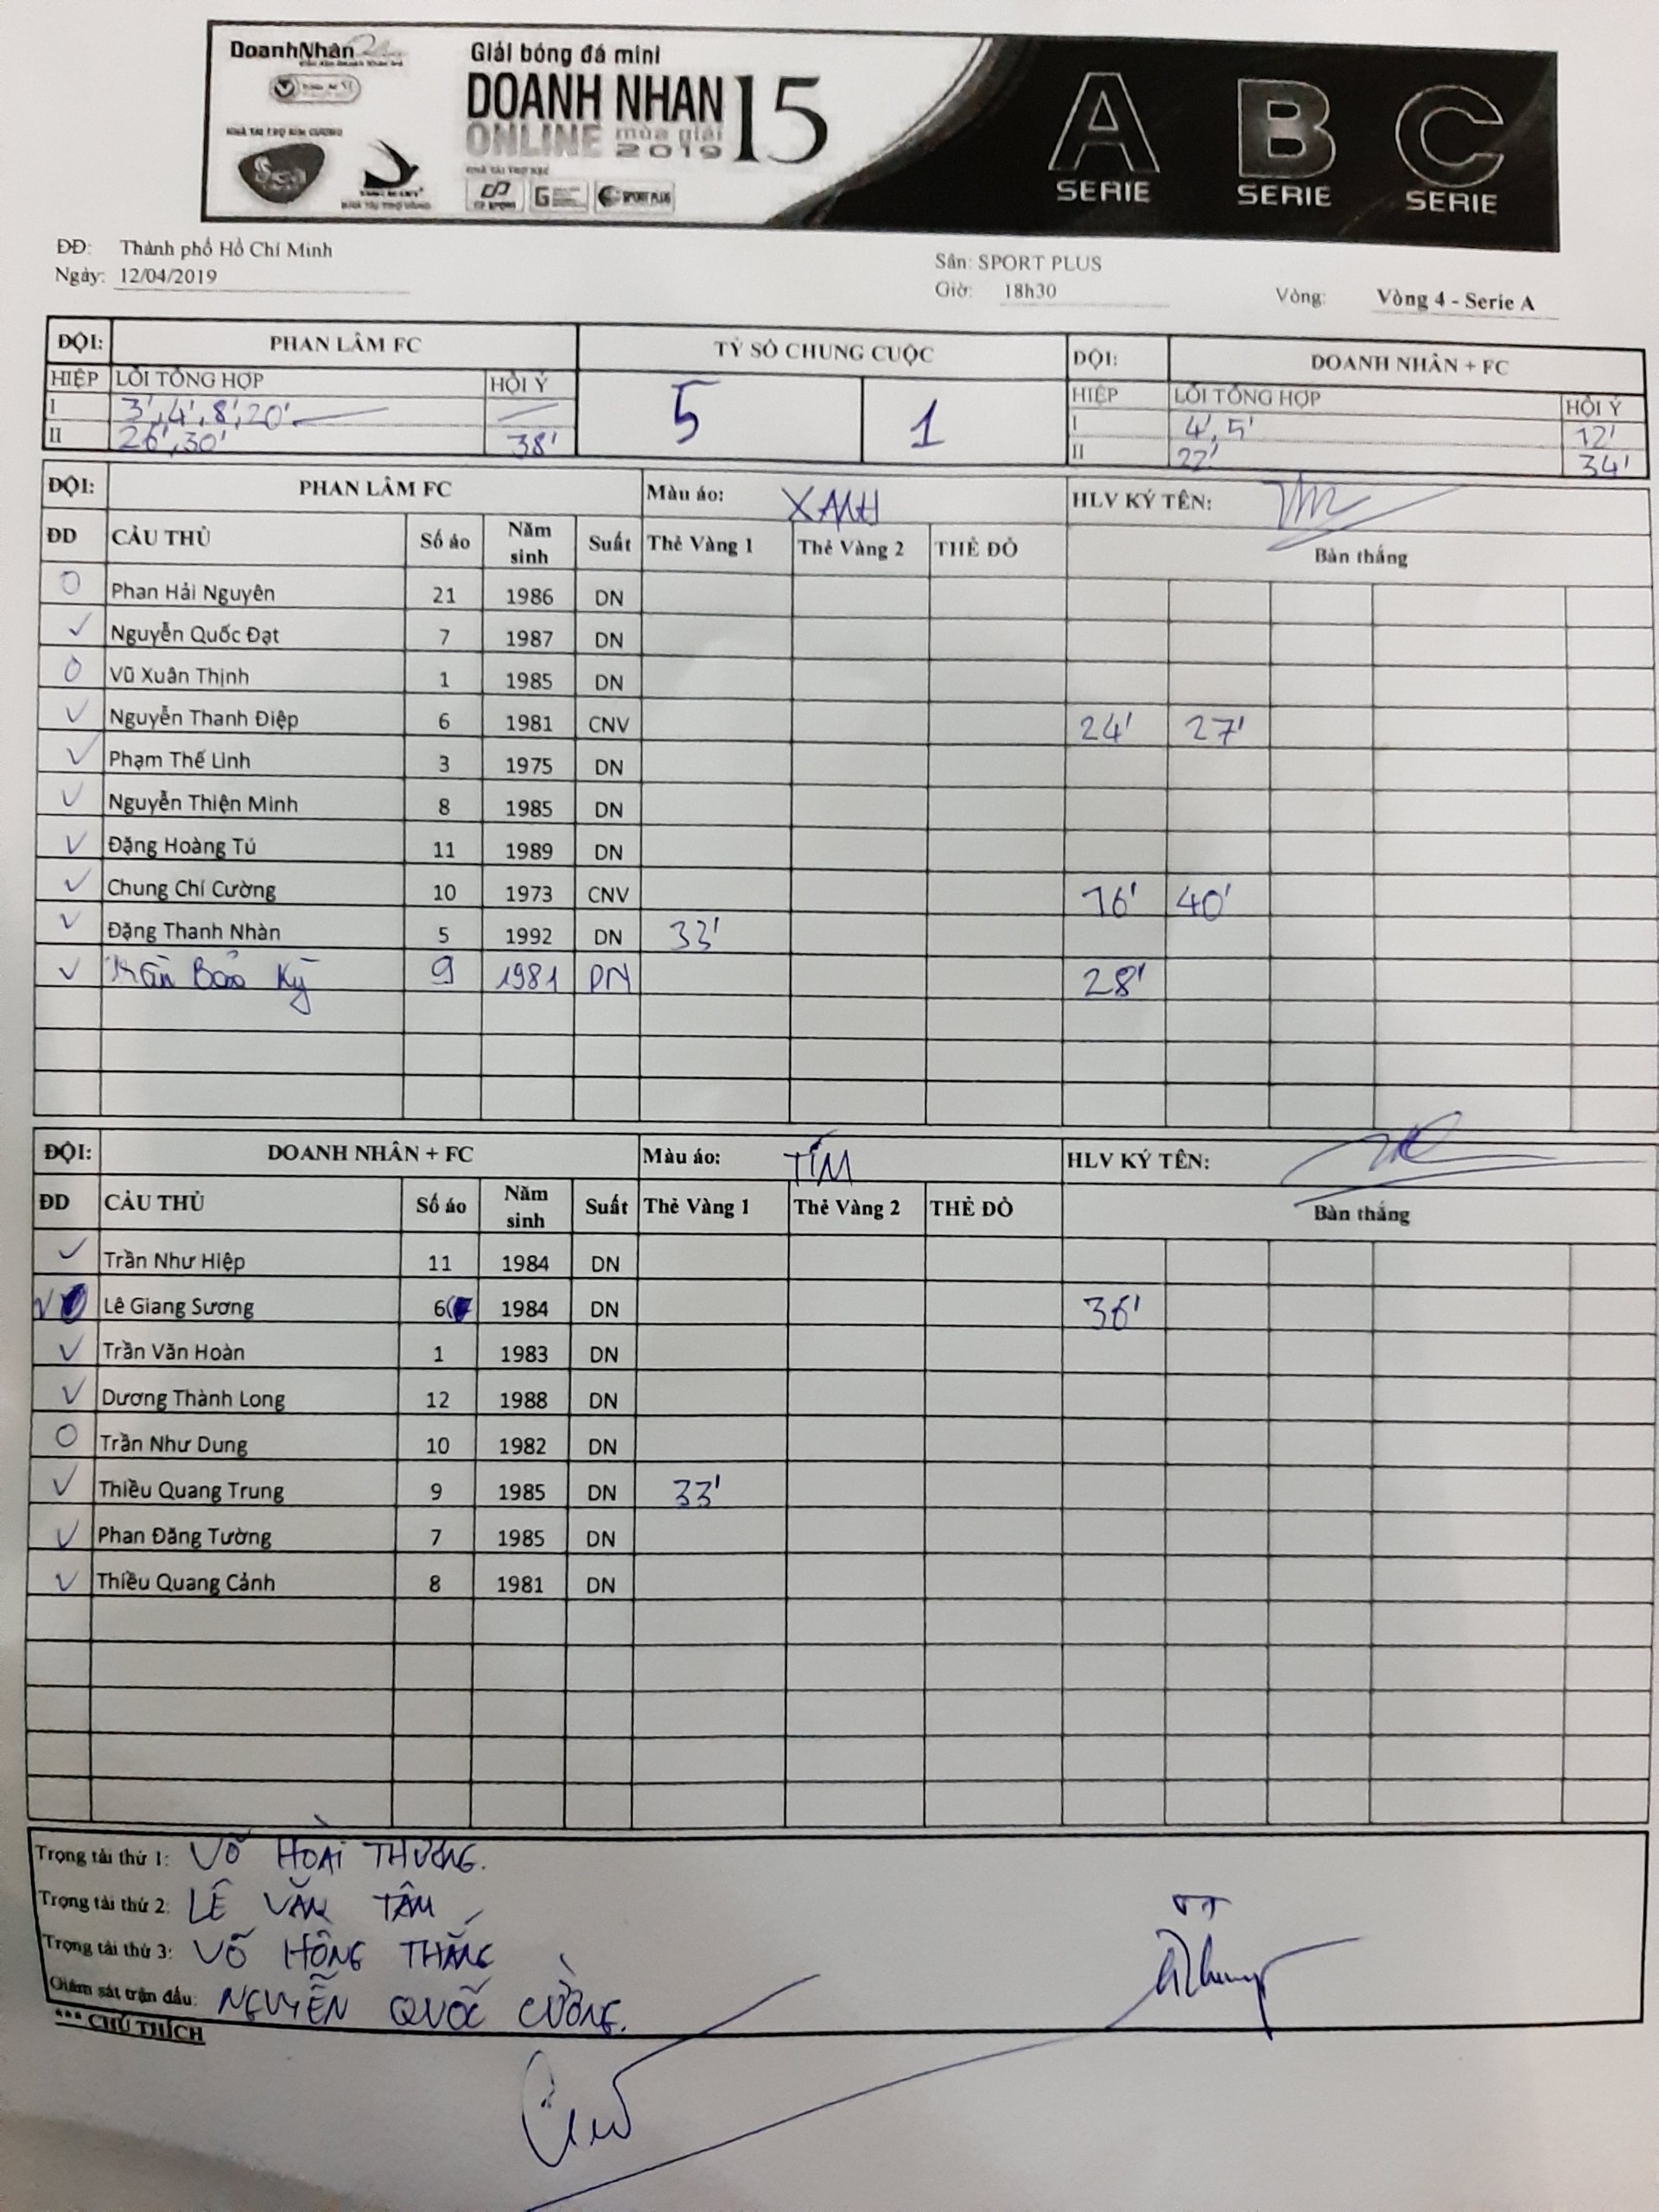 DoanhNhân
Giải bóng đá mini
DOANH NHAN 15
ONLINE mùa giải 2019
NHÀ TÀI TRỢ KIM CƯƠNG
SPORT PLUS
A SERIE B SERIE C SERIE
ĐĐ: Thành phố Hồ Chí Minh
Ngày: 12/04/2019
Sân: SPORT PLUS
Giờ: 18h30 Vòng: Vòng 4 - Serie A
ĐỘI: PHAN LÂM FC TỶ SỐ CHUNG CUỘC ĐỘI: DOANH NHÂN + FC
HIỆP LỖI TỔNG HỢP HỘI Ý 5 1 HIỆP LỖI TỔNG HỢP HỘI Ý
I 3', 4', 8', 20' I 4', 5' 12'
II 26', 30' 38' II 22' 34'
ĐỘI: PHAN LÂM FC Màu áo: XANH HLV KÝ TÊN:
ĐD CẦU THỦ Số áo Năm sinh Suất Thẻ Vàng 1 Thẻ Vàng 2 THẺ ĐỎ Bàn thắng
Phan Hải Nguyên 21 1986 DN
Nguyễn Quốc Đạt 7 1987 DN
Vũ Xuân Thịnh 1 1985 DN
Nguyễn Thanh Điệp 6 1981 CNV 24' 27'
Phạm Thế Linh 3 1975 DN
Nguyễn Thiện Minh 8 1985 DN
Đặng Hoàng Tú 11 1989 DN
Chung Chí Cường 10 1973 CNV 16' 40'
Đặng Thanh Nhàn 5 1992 DN 33'
Trần Bảo Kỳ 9 1981 DN 28'
ĐỘI: DOANH NHÂN + FC Màu áo: TÍM HLV KÝ TÊN:
ĐD CẦU THỦ Số áo Năm sinh Suất Thẻ Vàng 1 Thẻ Vàng 2 THẺ ĐỎ Bàn thắng
Trần Như Hiệp 11 1984 DN
Lê Giang Sương 6 1984 DN 36'
Trần Văn Hoàn 1 1983 DN
Dương Thành Long 12 1988 DN
Trần Như Dung 10 1982 DN
Thiều Quang Trung 9 1985 DN 33'
Phan Đăng Tường 7 1985 DN
Thiều Quang Cảnh 8 1981 DN
Trọng tài thứ 1: VÕ HOÀI THƯƠNG.
Trọng tài thứ 2: LÊ VĂN TÂM
Trọng tài thứ 3: VÕ HỒNG THẮNG
Giám sát trận đấu: NGUYỄN QUỐC CƯỜNG.
TT
*** CHÚ THÍCH